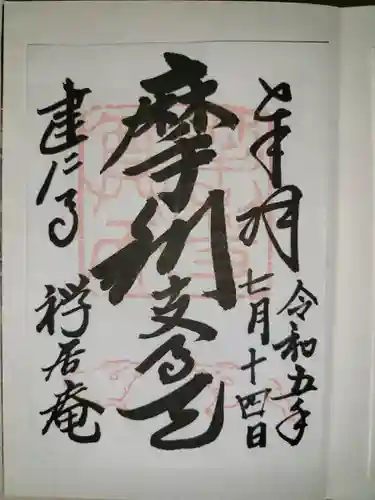 奉拝
令和五年
七月十四日
摩利支尊天
建仁寺
禅居庵